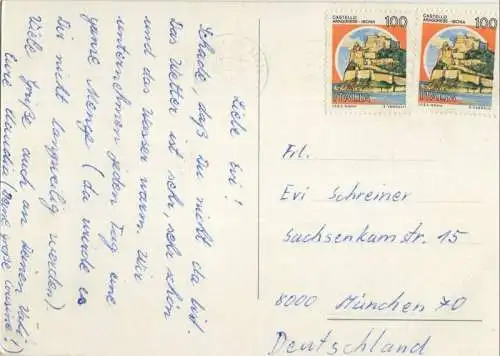 Liebe Evi!
Schade, daß Du nicht da bist.
Das Wetter ist sehr, sehr schön
und das Wasser warm. Wir
unternehmen jeden Tag eine
ganze Menge (da würde es
Dir nicht langweilig werden).
Viele Grüße auch an Deinen
Eure Claudia (Deine große Cousine!)
CASTELLO
ARAGONESE - ISCHIA
100
ITALIA
CASTELLO
ARAGONESE - ISCHIA
100
ITALIA
Frl.
Evi Schreiner
Sachsenkamstr. 15
8000 München 70
Deutschland